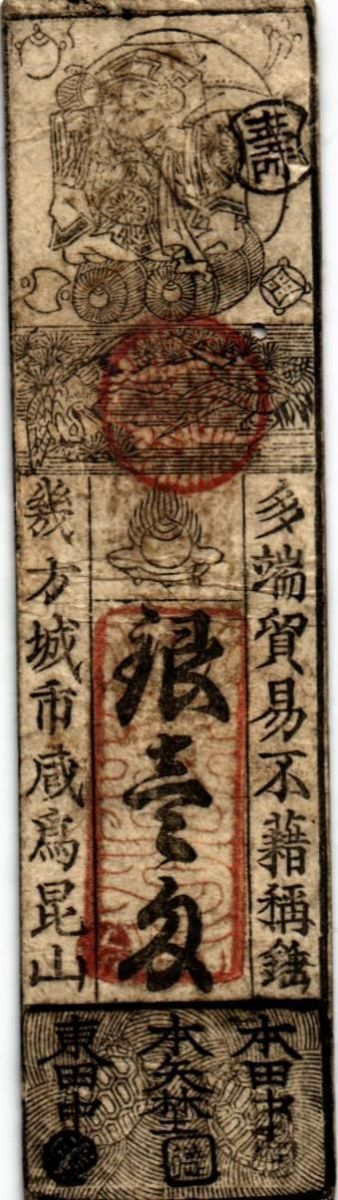 多端貿易不藉稱錘
銀壹匁
幾方城市咸爲昆山
本田中
本矢埜
東田中